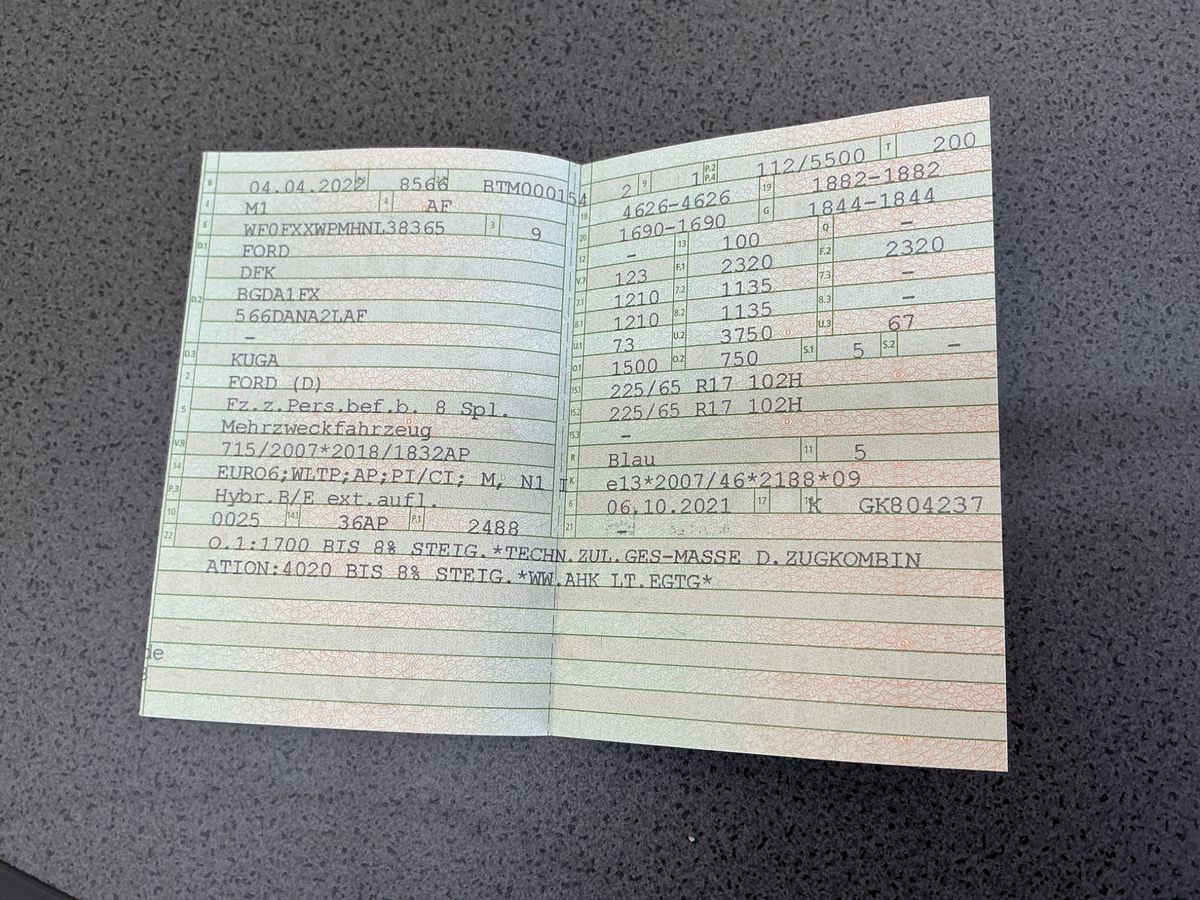 B 04.04.2022 8566 BTM000154
J M1 4 AF
E WF0FXXWPMHNL38365 3 9
D.1 FORD
DFK
D.2 BGDA1FX
566DANA2LAF
–
D.3 KUGA
2 FORD (D)
5 Fz.z.Pers.bef.b. 8 Spl.
Mehrzweckfahrzeug
V.9 715/2007*2018/1832AP
14 EURO6;WLTP;AP;PI/CI; M, N1 I
P.3 Hybr.B/E ext.aufl.
10 0025 14.1 36AP P.1 2488
22 O.1:1700 BIS 8% STEIG.*TECHN.ZUL.GES-MASSE D.ZUGKOMBIN
ATION:4020 BIS 8% STEIG.*WW.AHK LT.EGTG*
de
2 9 1 P.2 P.4 112/5500 T 200
18 4626-4626 19 1882-1882
20 1690-1690 G 1844-1844
12 – 13 100 Q –
V.7 123 F.1 2320 F.2 2320
7.1 1210 7.2 1135 7.3 –
8.1 1210 8.2 1135 8.3 –
U.1 73 U.2 3750 U.3 67
O.1 1500 O.2 750 S.1 5 S.2 –
15.1 225/65 R17 102H
15.2 225/65 R17 102H
15.3 –
R Blau 11 5
K e13*2007/46*2188*09
6 06.10.2021 17 K GK804237
21 –